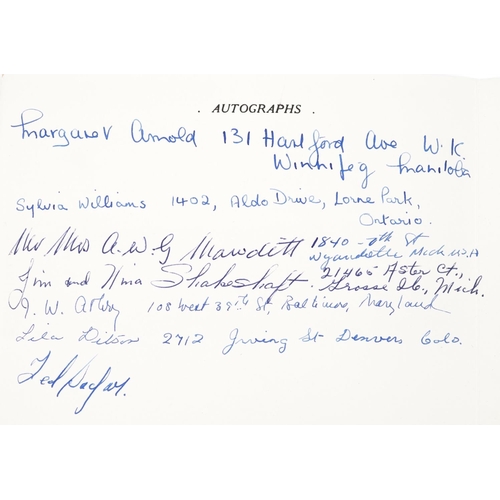 . AUTOGRAPHS .
Margaret Arnold 131 Hartford Ave W.K.
Winnipeg Manitoba
Sylvia Williams 1402, Aldo Drive, Lorne Park,
Ontario.
Mr Mrs A.W.G Mawditt 1840 - St
Wyandotte Mich. U.S.A
Jim and Nina Shakeshaft 21465 Aster Ct.,
Grosse Ile, Mich.
W. 108 West 39th St, Baltimore, Maryland
Lila 2712 Irving St Denver Colo.
Ted